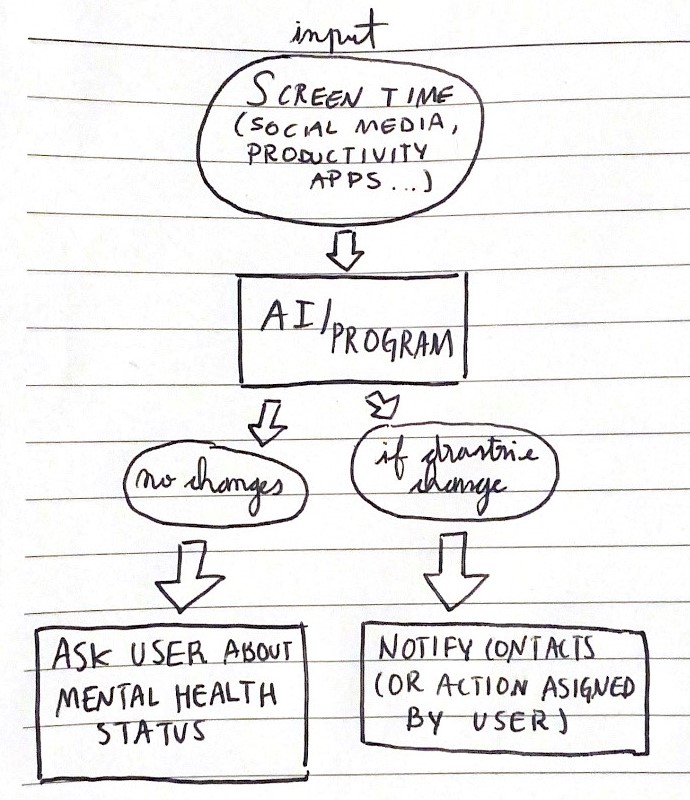 input
SCREEN TIME
(SOCIAL MEDIA,
PRODUCTIVITY
APPS...)
AI/PROGRAM
no changes
if drastric
change
ASK USER ABOUT
MENTAL HEALTH
STATUS
NOTIFY CONTACTS
(OR ACTION ASIGNED
BY USER)